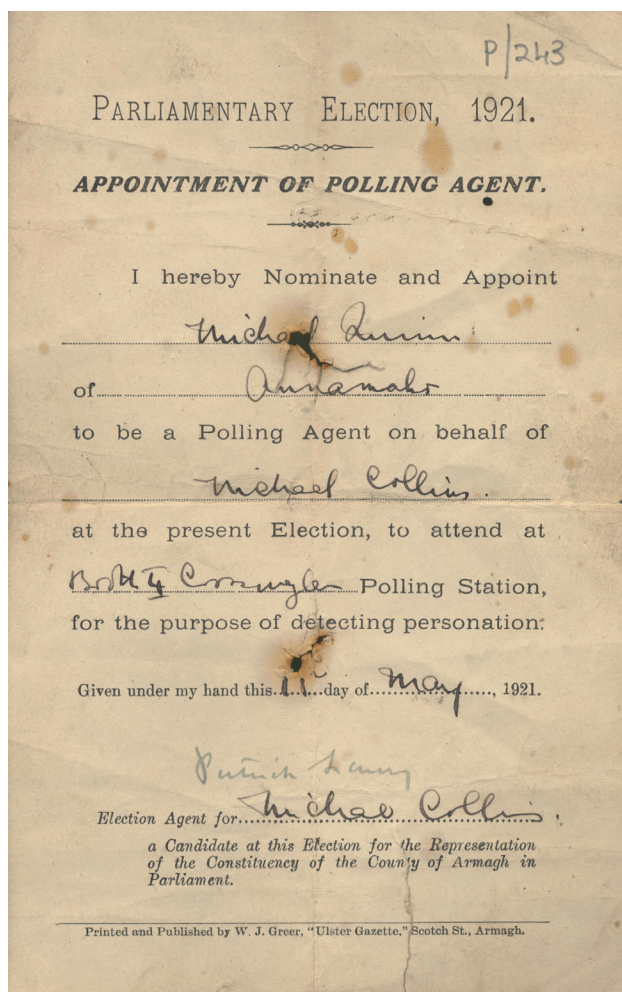 P/243
PARLIAMENTARY ELECTION, 1921.
APPOINTMENT OF POLLING AGENT.
I hereby Nominate and Appoint
Michael Quinn
of Annamahr
to be a Polling Agent on behalf of
Michael Collins.
at the present Election, to attend at
Booth Polling Station,
for the purpose of detecting personation:
Given under my hand this day of May, 1921.
Patrick
Election Agent for Michael Collins.
a Candidate at this Election for the Representation
of the Constituency of the County of Armagh in
Parliament.
Printed and Published by W. J. Greer, "Ulster Gazette," Scotch St., Armagh.